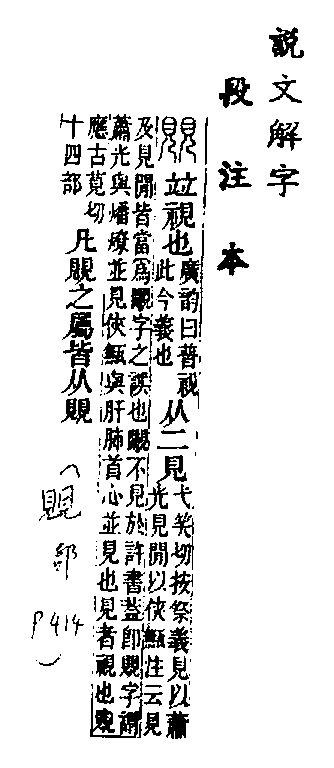 說文解字
段注本
覞 竝視也廣韵曰普視此今義也从二見弋笑切按祭義見以蕭光見閒以俠甒注云見
及見閒皆當爲覸字之誤也覸不見於許書蓋卽覞字謂
蕭光與燔燎並見俠甒與肝肺首心並見也見者視也覞
應古莧切十四部凡覞之屬皆从覞
(覞部 P414)